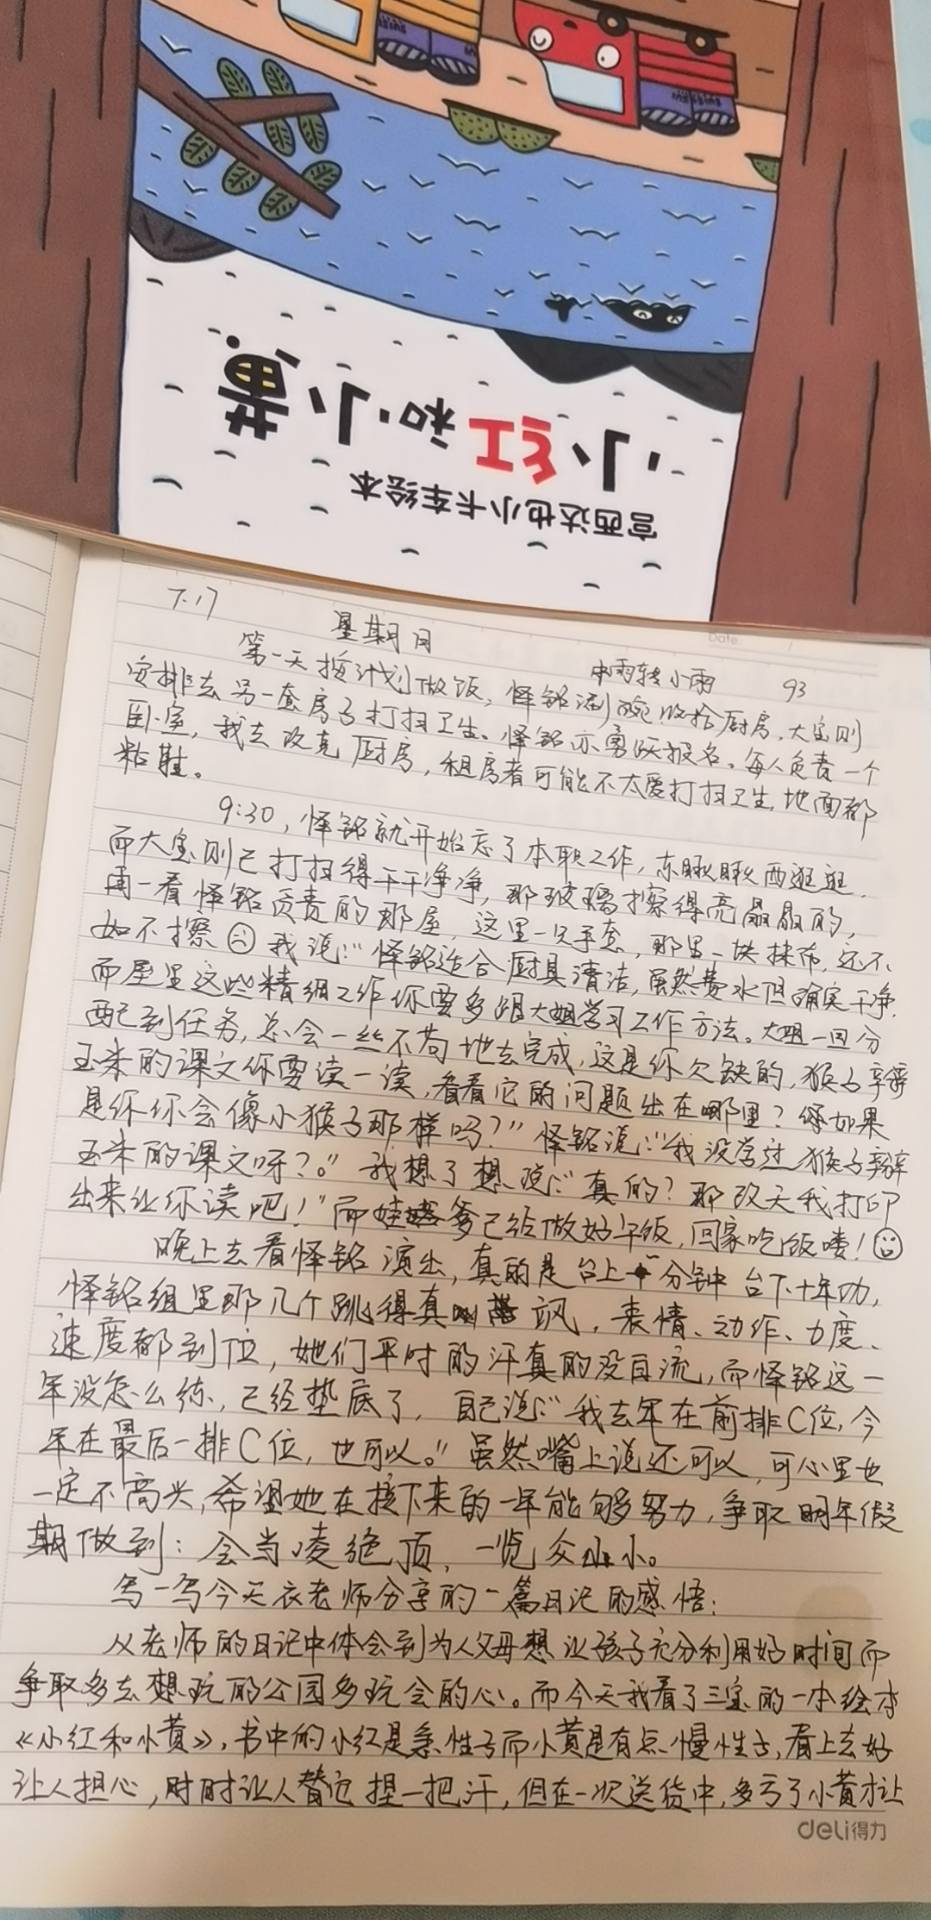 宫西达也小卡车绘本
小红和小黄
Date
7.17 星期日 中雨转小雨 93
第一天按计划做饭，怪铭涮碗收拾厨房，大宝则
安排去另一套房子打扫卫生、怪铭亦勇跃报名。每人负责一个
卧室，我去攻克厨房，租房者可能不太爱打扫卫生，地面都
粘鞋。
9:30，怪铭就开始忘了本职工作，东瞅瞅西逛逛，
而大宝则已打扫得干干净净，那玻璃擦得亮晶晶的，
再一看怪铭负责的那屋，这里一只手套，那里一块抹布，还不
如不擦 我说：“怪铭适合厨具清洁，虽然费水但确实干净，
而屋里这些精细工作你要多跟大姐学习工作方法。大姐一回分
配到任务，总会一丝不苟地去完成，这是你欠缺的，猴子掰
玉米的课文你要读一读，看看它的问题出在哪里？如果
是你你会像小猴子那样吗？”怪铭说：“我没学过猴子掰
玉米的课文呀？。”我想了想说：“真的？那改天我打印
出来让你读吧！”而娃爹已给做好午饭，回家吃饭喽！
晚上去看怪铭演出，真的是台上一分钟台下十年功，
怪铭组里那几个跳得真飒，表情、动作、力度、
速度都到位，她们平时的汗真的没白流，而怪铭这一
年没怎么练，已经垫底了，自己说：“我去年在前排C位，今
年在最后一排C位，也可以。”虽然嘴上说还可以，可心里也
一定不高兴，希望她在接下来的一年能够努力，争取明年假
期做到：会当凌绝顶，一览众山小。
写一写今天衣老师分享的一篇日记的感悟：
从老师的日记中体会到为人父母想让孩子充分利用好时间而
争取多去想玩的公园多玩会的心。而今天我看了三宝的一本绘本
《小红和小黄》，书中的小红是急性子而小黄是有点慢性子，看上去好
让人担心，时时让人替它捏一把汗，但在一次送货中，多亏了小黄才让
deli得力